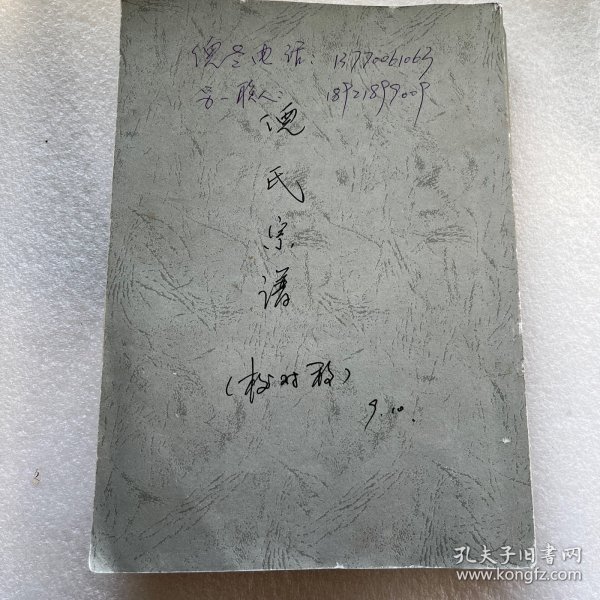 电话：13770061063
另一联人：18921899009
倪氏宗谱
（校对稿）
9.10.
孔夫子旧书网
www.kongfz.com